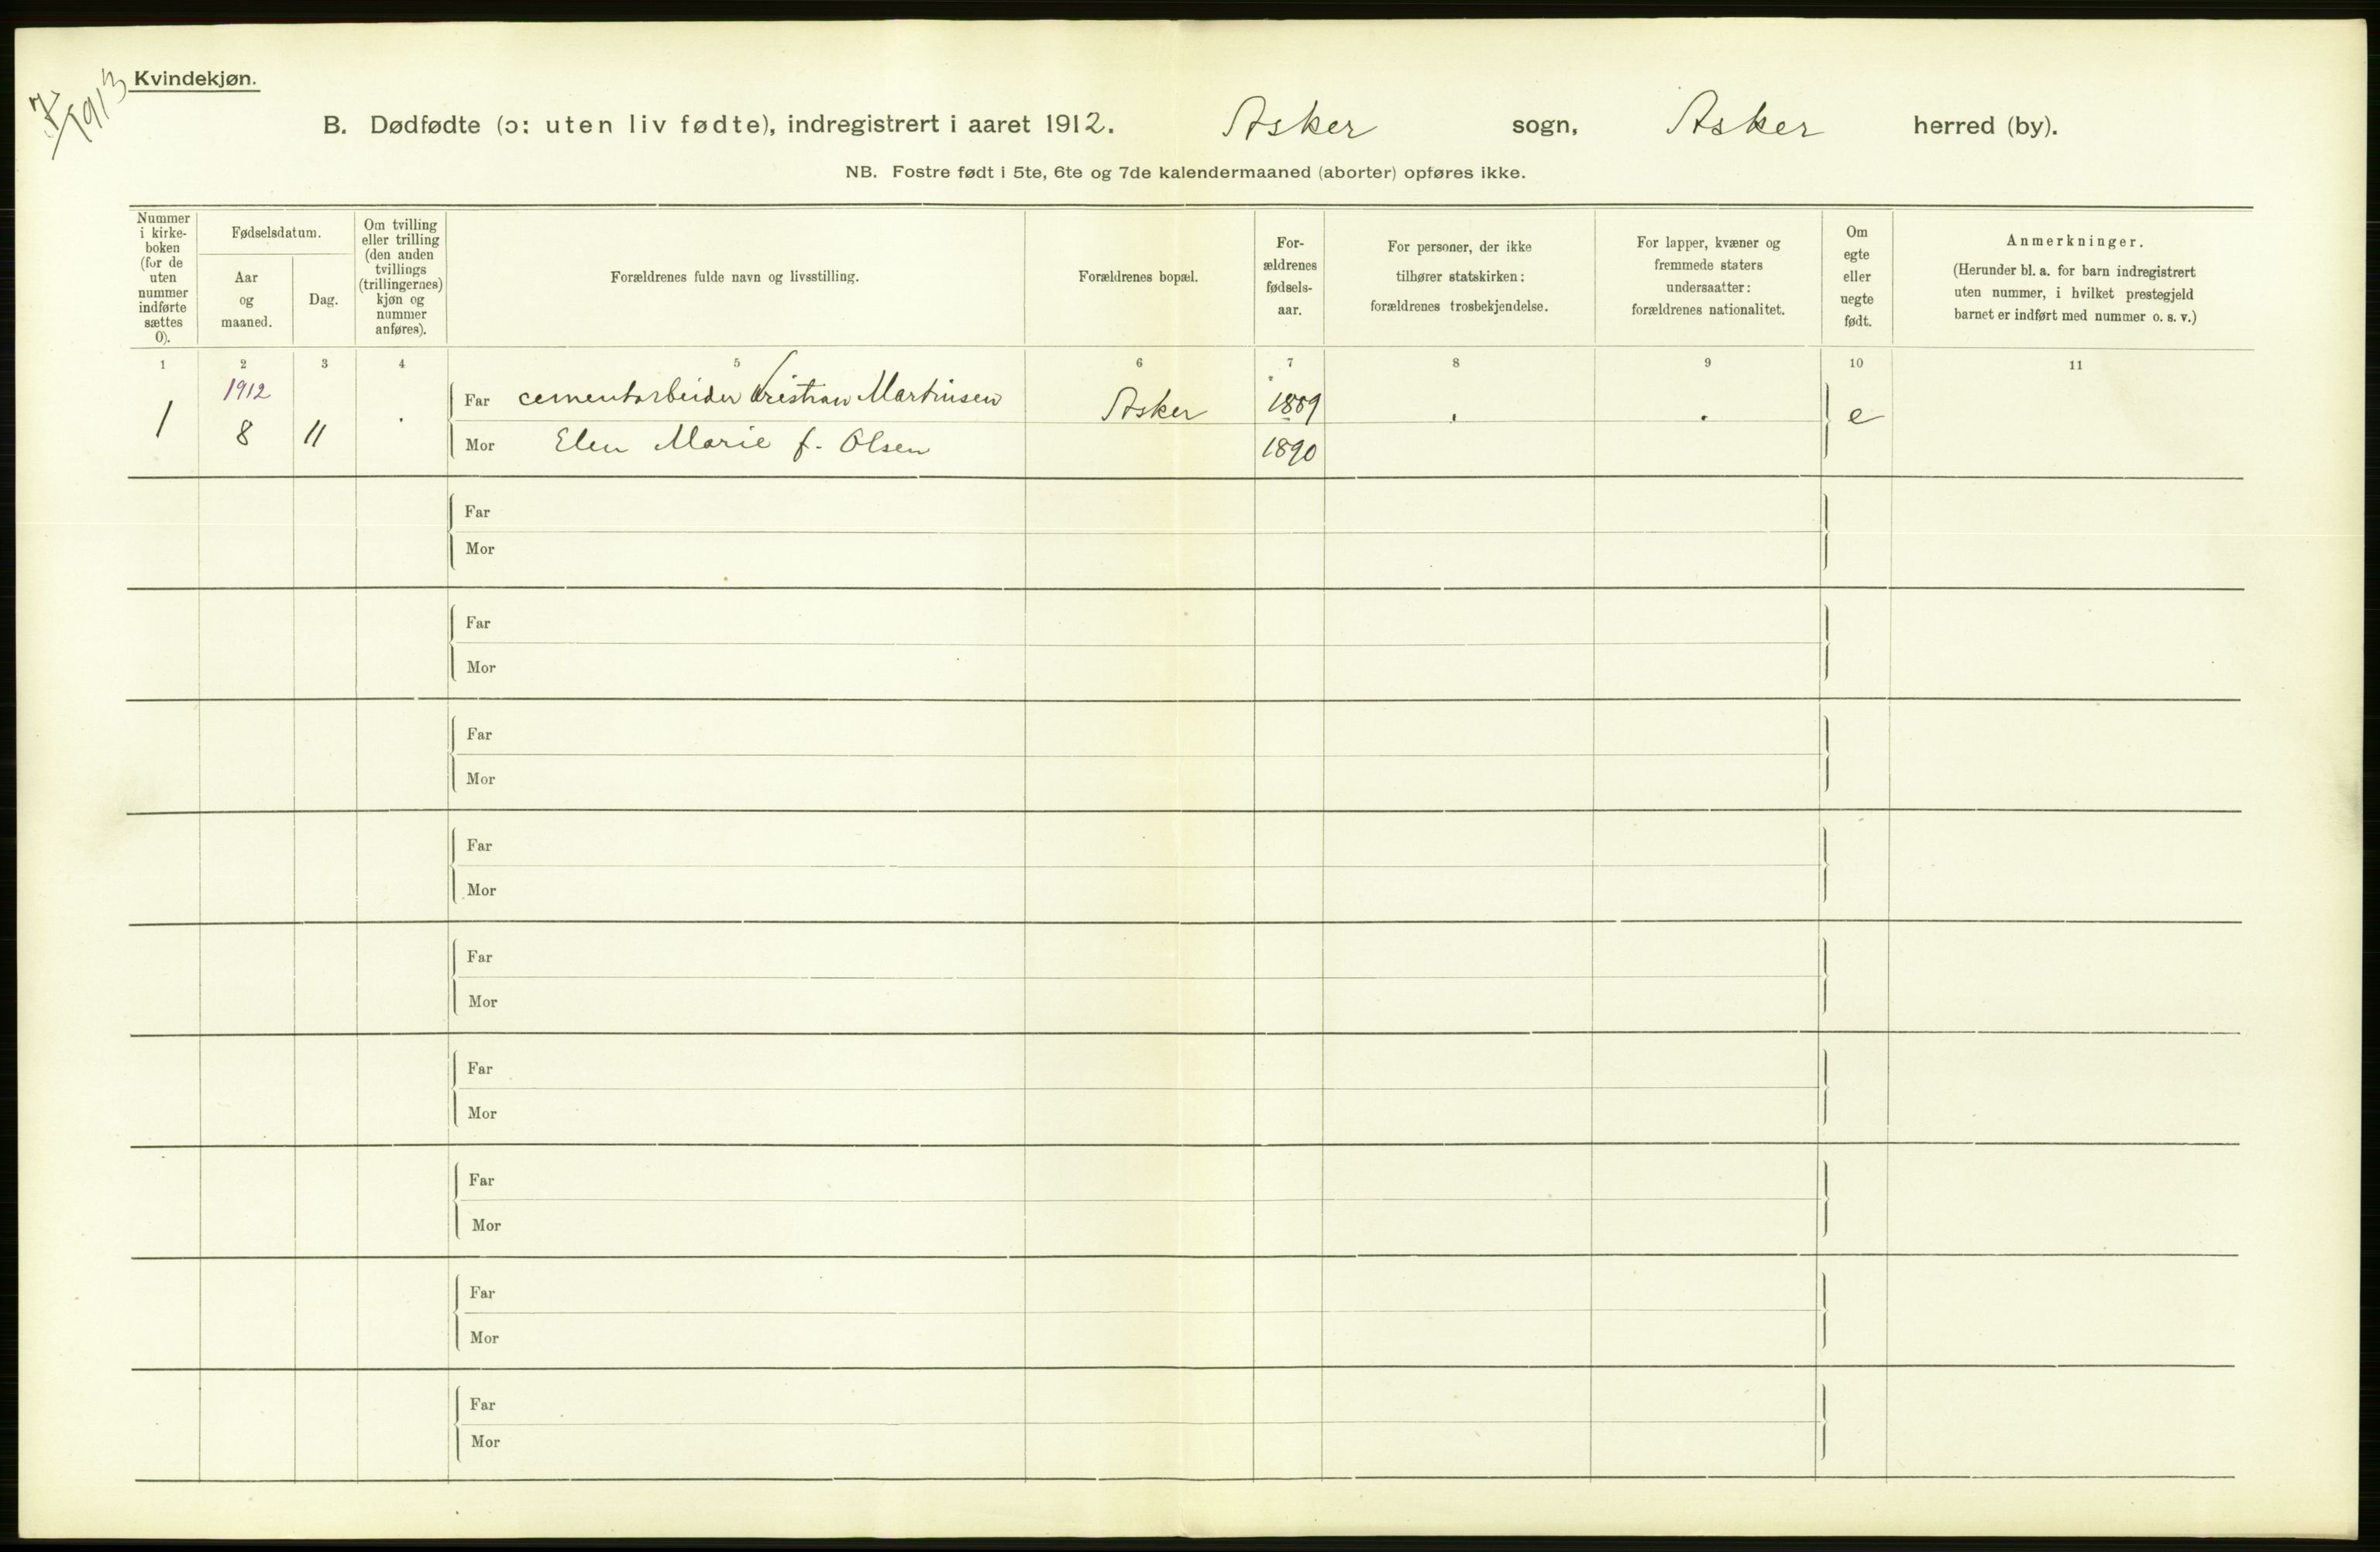 7/1913
Kvindekjøn.
B. Dødfødte (ɔ: uten liv fødte), indregistrert i aaret 1912. Asker sogn, Asker herred (by).
NB. Fostre født i 5te, 6te og 7de kalendermaaned (aborter) opføres ikke.
Nummer
i kirke-
boken
(for de
uten
nummer
indførte
sættes
0).
Fødselsdatum.
Aar
og
maaned.
Dag.
Om tvilling
eller trilling
(den anden
tvillings
(trillingernes)
kjøn og
nummer
anføres).
Forældrenes fulde navn og livsstilling.
Forældrenes bopæl.
For-
ældrenes
fødsels-
aar.
For personer, der ikke
tilhører statskirken:
forældrenes trosbekjendelse.
For lapper, kvæner og
fremmede staters
undersaatter:
forældrenes nationalitet.
Om
egte
eller
uegte
født.
Anmerkninger.
(Herunder bl. a. for barn indregistrert
uten nummer, i hvilket prestegjeld
barnet er indført med nummer o. s. v.)
1 2 3 4 5 6 7 8 9 10 11
1912
1 8 11 Far cementarbeider Kristian Martinsen Asker 1889 e
Mor Elen Marie f. Olsen 1890
Far
Mor
Far
Mor
Far
Mor
Far
Mor
Far
Mor
Far
Mor
Far
Mor
Far
Mor
Far
Mor